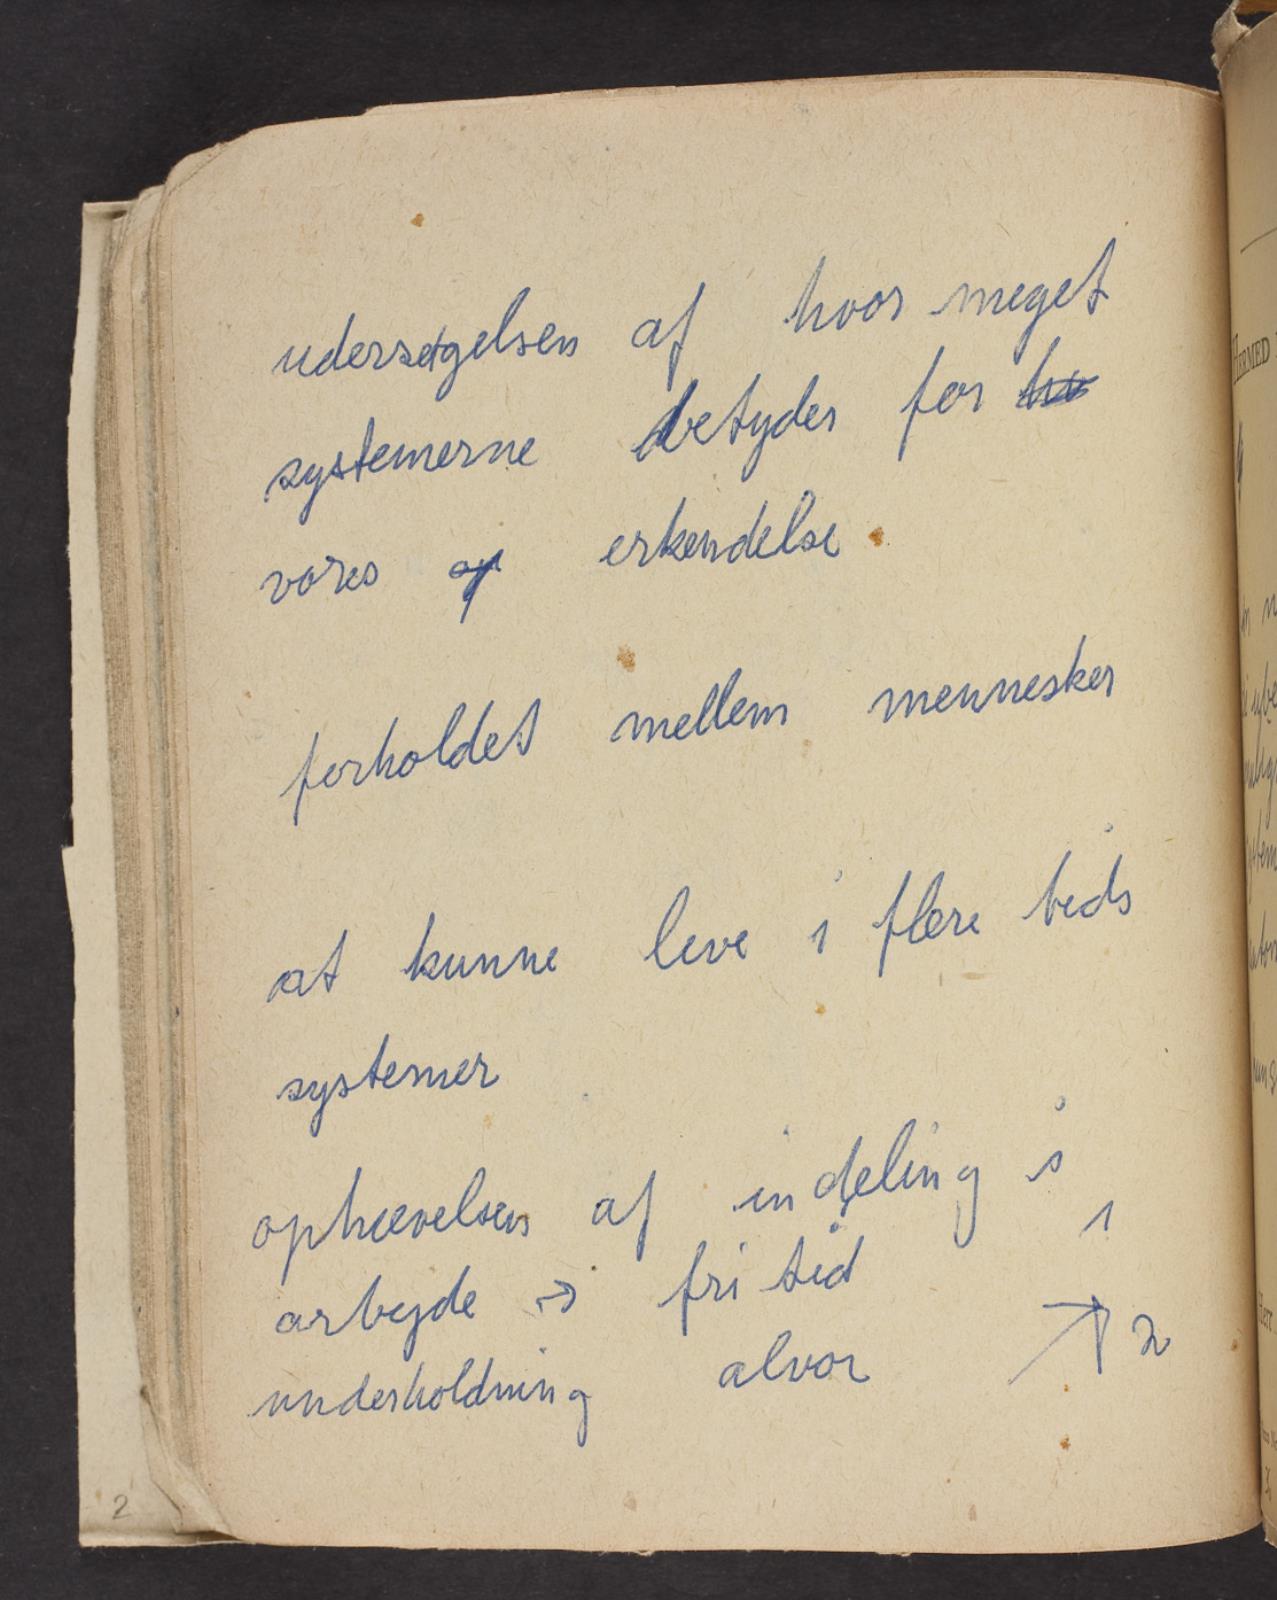 udersøgelsen af hvor meget
systemerne betyder for
vores erkendelse
forholdet mellem mennesker
at kunne leve i flere tids
systemer
ophævelsen af indeling i
arbejde → fritid
underholdning alvor
1
2
2
HERMED
Herr